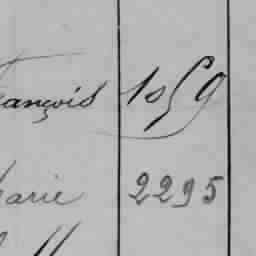 François 1059
Marie 2295